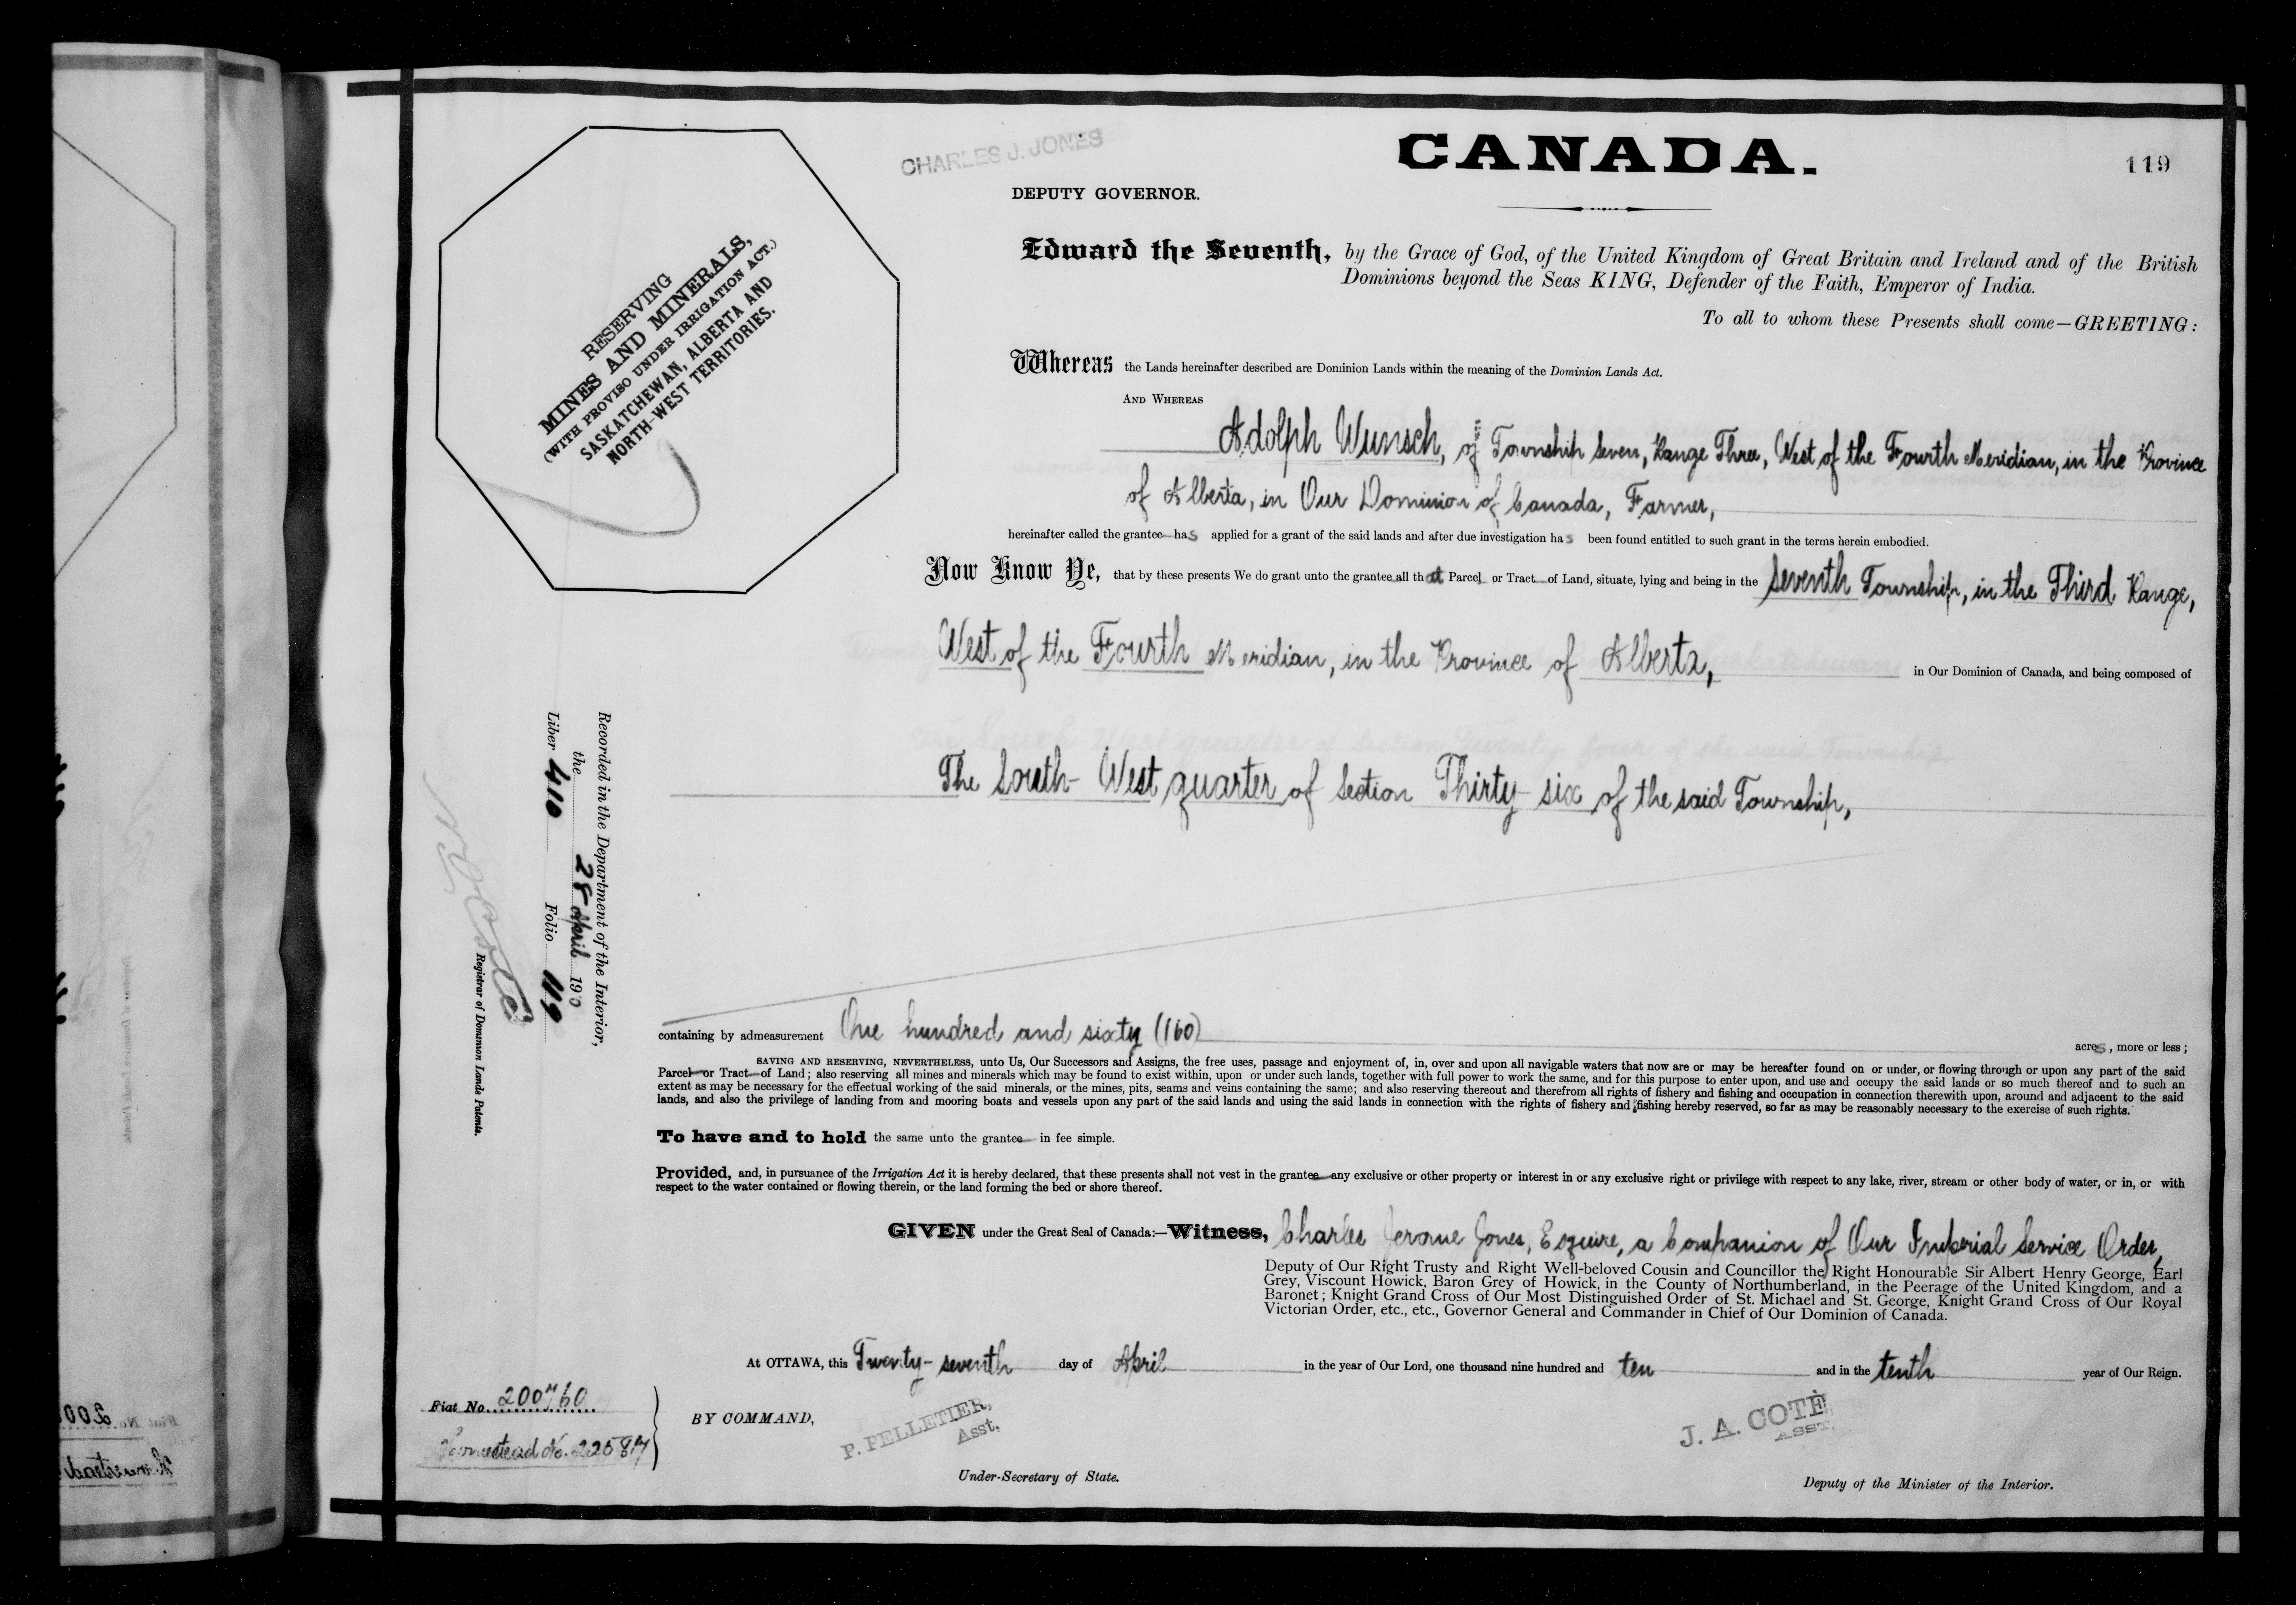 CHARLES J. JONES
CANADA.
119
DEPUTY GOVERNOR.
RESERVING
MINES AND MINERALS,
(WITH PROVISO UNDER IRRIGATION ACT.)
SASKATCHEWAN, ALBERTA AND
NORTH-WEST TERRITORIES.
Edward the Seventh, by the Grace of God, of the United Kingdom of Great Britain and Ireland and of the British
Dominions beyond the Seas KING, Defender of the Faith, Emperor of India.
To all to whom these Presents shall come—GREETING:
Whereas the Lands hereinafter described are Dominion Lands within the meaning of the Dominion Lands Act.
AND WHEREAS
Adolph Wunsch, of Township Seven, Range Three, West of the Fourth Meridian, in the Province
of Alberta, in Our Dominion of Canada, Farmer,
hereinafter called the grantee has applied for a grant of the said lands and after due investigation has been found entitled to such grant in the terms herein embodied.
Now Know Ye, that by these presents We do grant unto the grantee all that Parcel or Tract of Land, situate, lying and being in the Seventh Township, in the Third Range,
West of the Fourth Meridian, in the Province of Alberta, in Our Dominion of Canada, and being composed of
The South-West quarter of Section Thirty-six of the said Township,
Recorded in the Department of the Interior,
the 28 April 1910
Liber 410 Folio 119
Registrar of Dominion Lands Patents.
containing by admeasurement One hundred and sixty (160) acres, more or less;
SAVING AND RESERVING, NEVERTHELESS, unto Us, Our Successors and Assigns, the free uses, passage and enjoyment of, in, over and upon all navigable waters that now are or may be hereafter found on or under, or flowing through or upon any part of the said
Parcel or Tract of Land; also reserving all mines and minerals which may be found to exist within, upon or under such lands, together with full power to work the same, and for this purpose to enter upon, and use and occupy the said lands or so much thereof and to such an
extent as may be necessary for the effectual working of the said minerals, or the mines, pits, seams and veins containing the same; and also reserving thereout and therefrom all rights of fishery and fishing and occupation in connection therewith upon, around and adjacent to the said
lands, and also the privilege of landing from and mooring boats and vessels upon any part of the said lands and using the said lands in connection with the rights of fishery and fishing hereby reserved, so far as may be reasonably necessary to the exercise of such rights.
To have and to hold the same unto the grantee in fee simple.
Provided, and, in pursuance of the Irrigation Act it is hereby declared, that these presents shall not vest in the grantee any exclusive or other property or interest in or any exclusive right or privilege with respect to any lake, river, stream or other body of water, or in, or with
respect to the water contained or flowing therein, or the land forming the bed or shore thereof.
GIVEN under the Great Seal of Canada:—Witness, Charles Jerome Jones, Esquire, a Companion of Our Imperial Service Order,
Deputy of Our Right Trusty and Right Well-beloved Cousin and Councillor the Right Honourable Sir Albert Henry George, Earl
Grey, Viscount Howick, Baron Grey of Howick, in the County of Northumberland, in the Peerage of the United Kingdom, and a
Baronet; Knight Grand Cross of Our Most Distinguished Order of St. Michael and St. George, Knight Grand Cross of Our Royal
Victorian Order, etc., etc., Governor General and Commander in Chief of Our Dominion of Canada.
At OTTAWA, this Twenty-seventh day of April in the year of Our Lord, one thousand nine hundred and ten and in the tenth year of Our Reign.
Fiat No. 200760
Homestead No. 22587
BY COMMAND,
P. PELLETIER,
Asst.
Under-Secretary of State.
J. A. COTÉ
ASST.
Deputy of the Minister of the Interior.